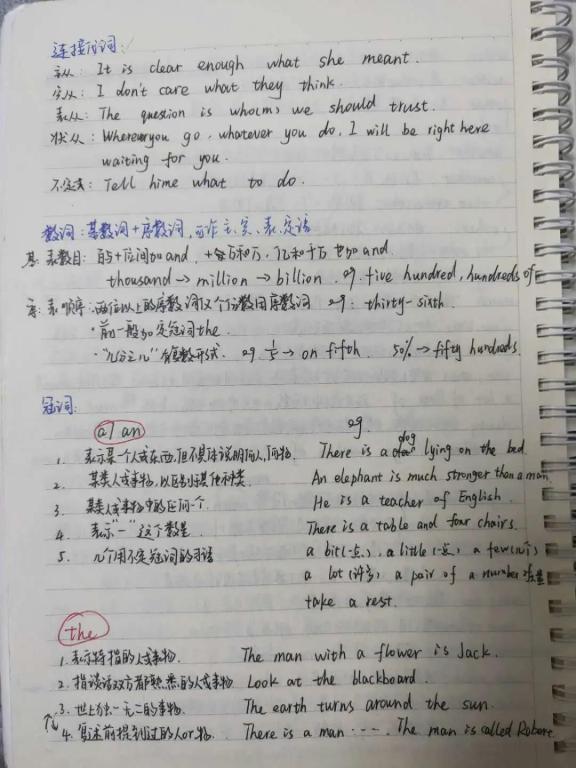 连接代词:
主从: It is clear enough what she meant.
宾从: I don't care what they think.
表从: The question is who(m) we should trust.
状从: Whereveryou go, whatever you do, I will be right here
waiting for you.
不定式: Tell hime what to do.
数词: 基数词+序数词, 可作主、宾、表、定语
基: 表数目: 百与十位间加and,
thousand → million → billion. eg. five hundred, hundreds of
序: 表顺序: 两位以上的序数词仅个位数用序数词 eg: thirty-sixth
·前一般加定冠词the.
·"几分之几" 有复数形式. eg 1/5 → on fifth. 50% → fifty hundreds.
冠词:
a/an eg
1. 表示某个人或东西,但不具体说明何人,何物. There is a dog lying on the bed
2. 某类人或事物,以区别其他种类. An elephant is much stronger than a man.
3. 某类人或事物中的任何一个. He is a teacher of English.
4. 表示"一"这个数量. There is a table and four chairs.
5. 几个用不定冠词的习语 a bit(一点), a little(一点) a few(几个)
a lot(许多) a pair of a number
take a rest.
the
1. 表示特指的人或事物. The man with a flower is Jack.
2. 指谈话双方都熟悉的人或事物 Look at the blackboard.
3. 世上独一无二的事物. The earth turns around the sun.
4. 复述前提到过的人or物. There is a man ···· The man is called Robert.